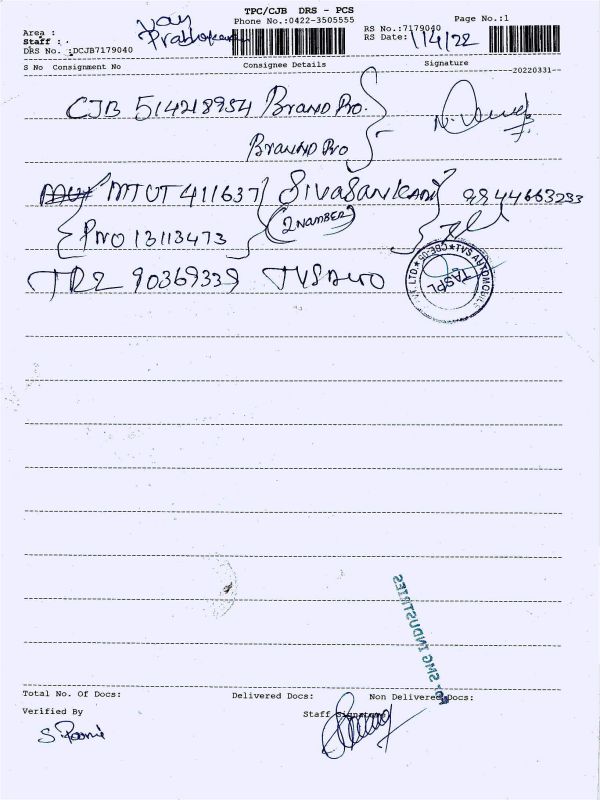 TPC/CJB DRS - PCS
Phone No.:0422-3505555
Page No.:1
Area :
Staff : .
DRS No. :DCJB7179040
RS No.:7179040
RS Date: 1/4/22
S No Consignment No Consignee Details Signature
--20220331--
CJB 514218954 Brand Pro.
Brand Pro
MTUT 411637 Sivasankari 9944663233
(2 NAMBER)
PNO 13113473
90369339 TVS Auto
TVS AUTOMOBILE
LTD.
TASPL
For SMG INDUSTRIES
Total No. Of Docs: Delivered Docs: Non Delivered Docs:
Verified By
Staff Signature